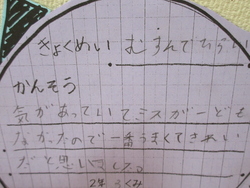 きょくめい むすんでひらい
かんそう
気があっていてミスが一ども
なかったので一番うまくてきれい
だと思いました。
2年 3くみ